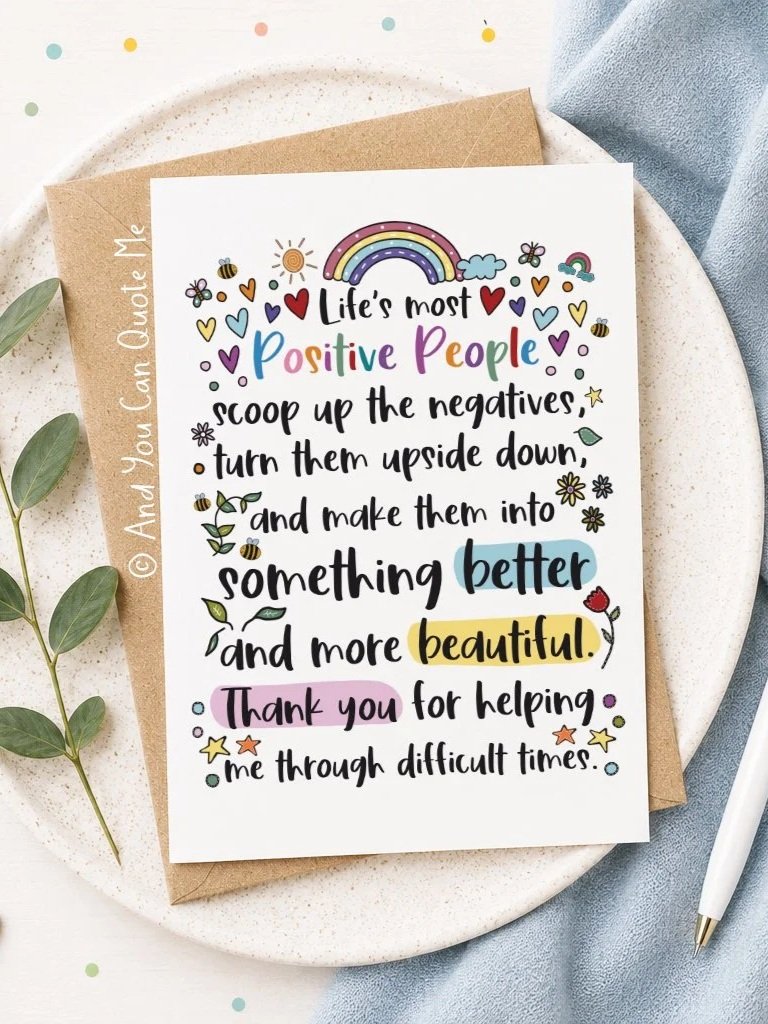 Life's most
Positive People
scoop up the negatives,
turn them upside down,
and make them into
something better
and more beautiful.
Thank you for helping
me through difficult times.
© And You Can Quote Me